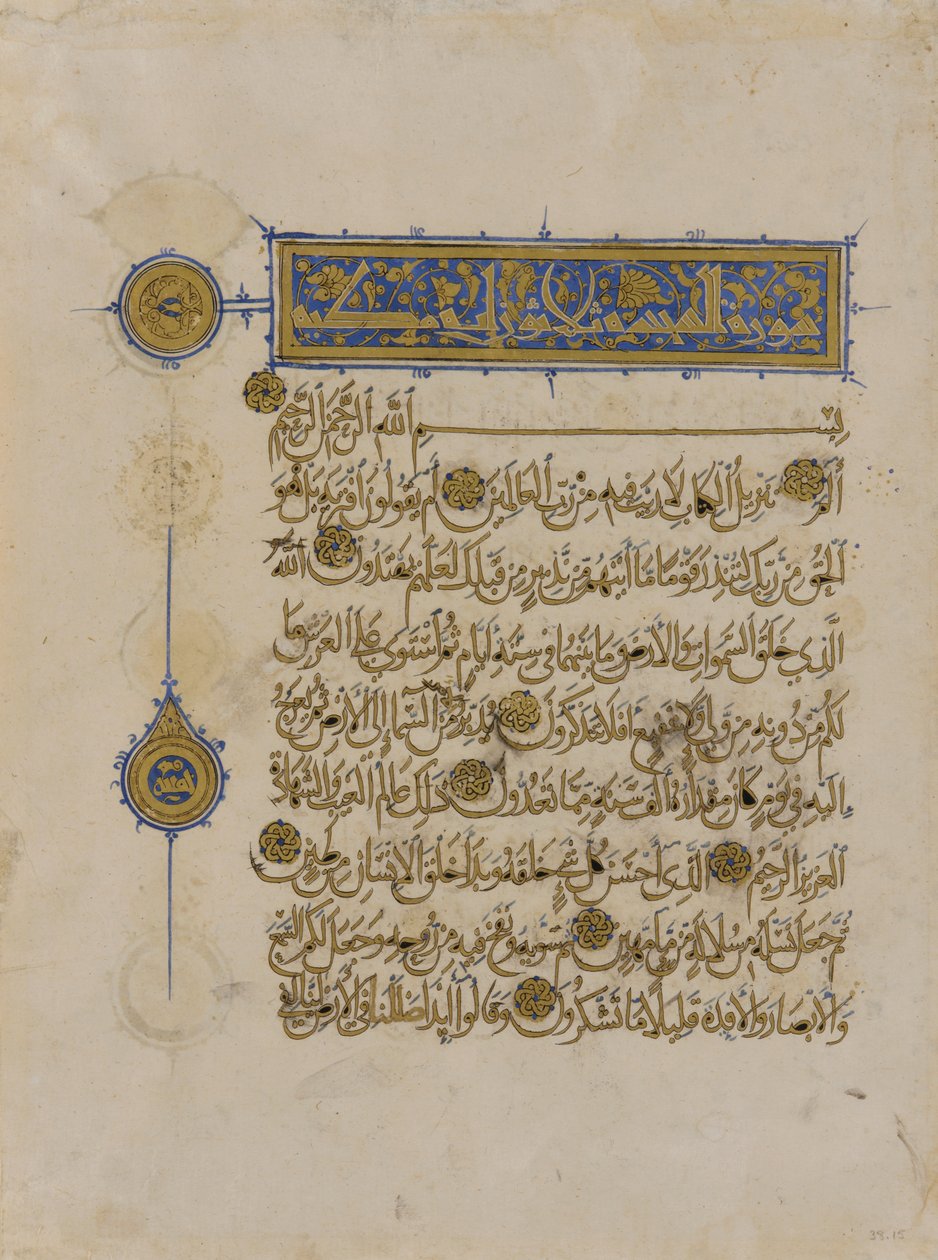 سورة السجدة ثلثون اية مكية
بسم الله الرحمن الرحيم
الم تنزيل الكتاب لا ريب فيه من رب العالمين أم يقولون افتريه بل هو
الحق من ربك لتنذر قوما ما أتيهم من نذير من قبلك لعلهم يهتدون الله
الذي خلق السموات والأرض وما بينهما في ستة أيام ثم استوى على العرش ما
لكم من دونه من ولي ولا شفيع أفلا تتذكرون يدبر الأمر من السماء إلى الأرض ثم يعرج
إليه في يوم كان مقداره ألف سنة مما تعدون ذلك عالم الغيب والشهادة
العزيز الرحيم الذي أحسن كل شيء خلقه وبدأ خلق الإنسان من طين
ثم جعل نسله من سلالة من ماء مهين ثم سويه ونفخ فيه من روحه وجعل لكم السمع
والأبصار والأفئدة قليلا ما تشكرون وقالوا أئذا ضللنا في الأرض أئنا لفي
38.15